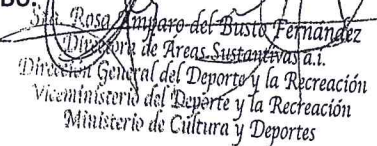 DO:
Sra. Rosa Amparo del Busto Fernández
Directora de Areas Sustantivas a.i.
Dirección General del Deporte y la Recreación
Viceministerio del Deporte y la Recreación
Ministerio de Cultura y Deportes